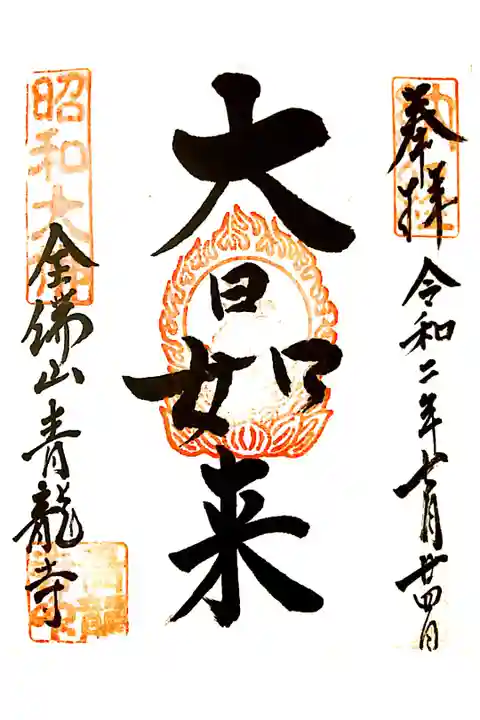 奉拝
令和二年七月廿四日
大日如来
全佛山青龍寺
昭和大佛